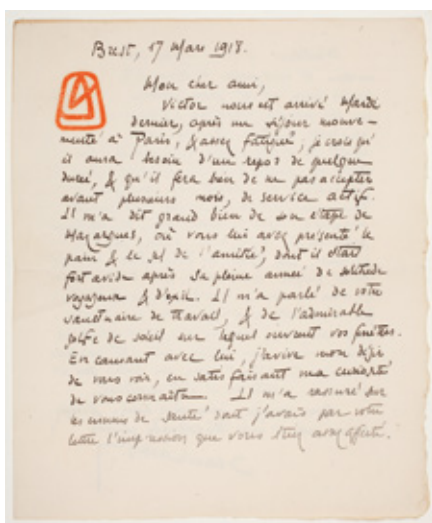 Brest, 17 Mars 1918.
Mon cher ami,
Victor nous est arrivé Mardi
dernier, après un séjour mouve-
menté à Paris, & assez fatigué; je crois qu'
il aura besoin d'un repos de quelque
durée, & qu'il fera bien de ne pas accepter
avant plusieurs mois, de service actif.
Il m'a dit grand bien de son étape de
Mazargues, où vous lui avez présenté le
pain & le sel de l'amitié, dont il était
fort avide après sa pleine année de solitude
voyageuse & d'exil. Il m'a parlé de votre
sanctuaire de travail, & de l'admirable
golfe de soleil sur lequel ouvrent vos fenêtres.
En causant avec lui, j'avive mon désir
de vous voir, en satisfaisant ma curiosité
de vous connaître. Il m'a rassuré sur
les ennuis de santé dont j'avais par votre
lettre l'impression que vous étiez assez affecté.